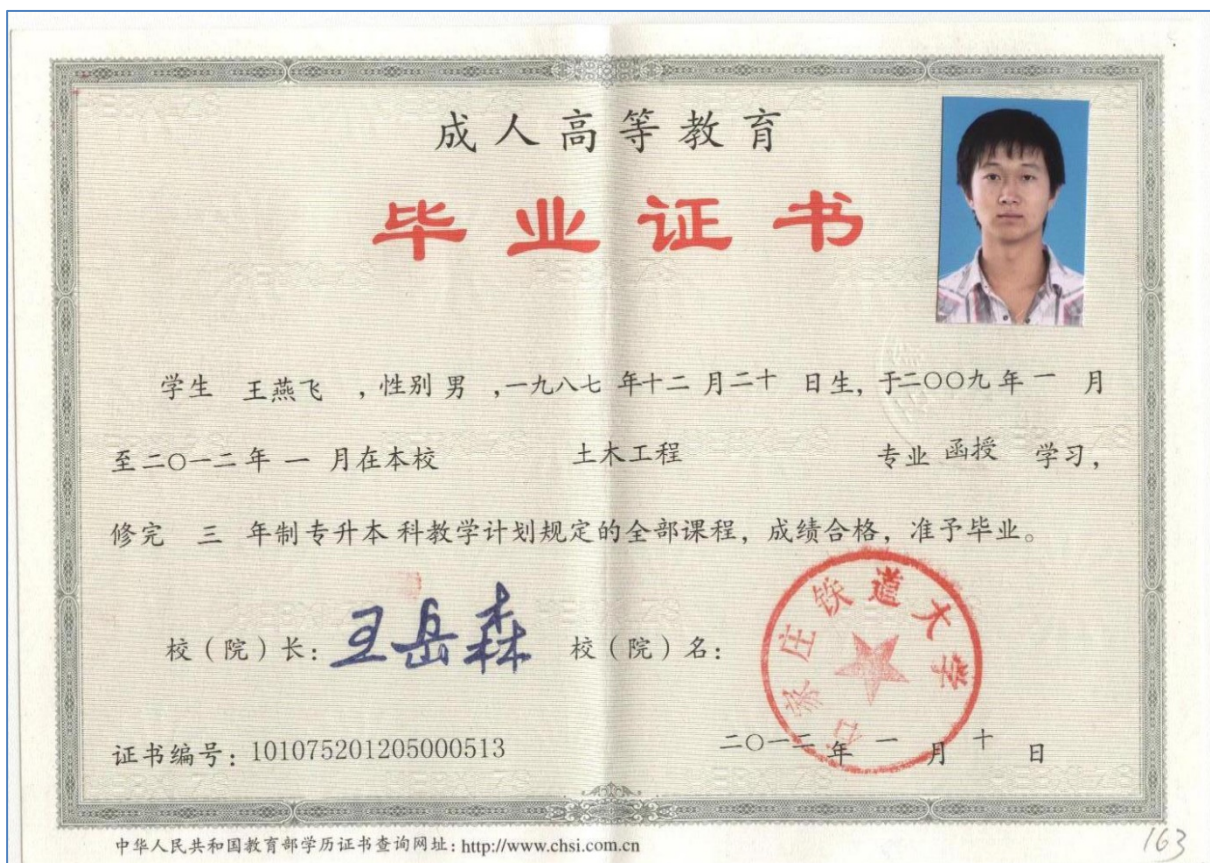 成人高等教育
毕业证书
学生 王燕飞 ，性别 男 ，一九八七 年十二 月二十 日生，于二〇〇九年 一 月
至二〇一二年 一 月在本校 土木工程 专业 函授 学习，
修完 三 年制专升本 科教学计划规定的全部课程，成绩合格，准予毕业。
校（院）长：王岳森 校（院）名：
石家庄铁道大学
证书编号：101075201205000513
二〇一二 年 一 月 十 日
中华人民共和国教育部学历证书查询网址：http://www.chsi.com.cn
163